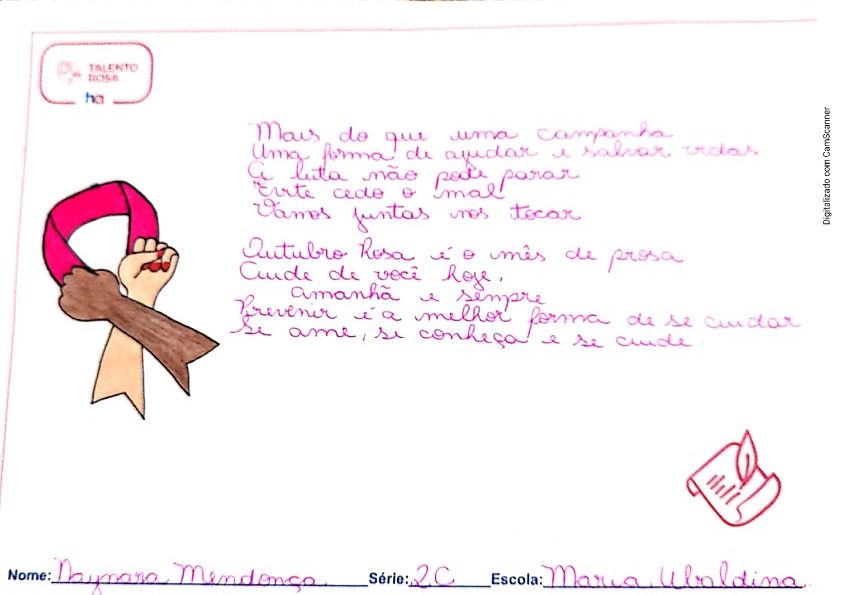 TALENTO
ROSA
ha
Mais do que uma campanha
Uma forma de ajudar e salvar vidas
A luta não pode parar
Evite cedo o mal
Vamos juntas nos tocar
Outubro Rosa é o mês de prosa
Cuide de você hoje,
amanhã e sempre
Prevenir é a melhor forma de se cuidar
Se ame, se conheça e se cuide.
Nome: Naynara Mendonça Série: 2C Escola: Maria Ubaldina
Digitalizado com CamScanner